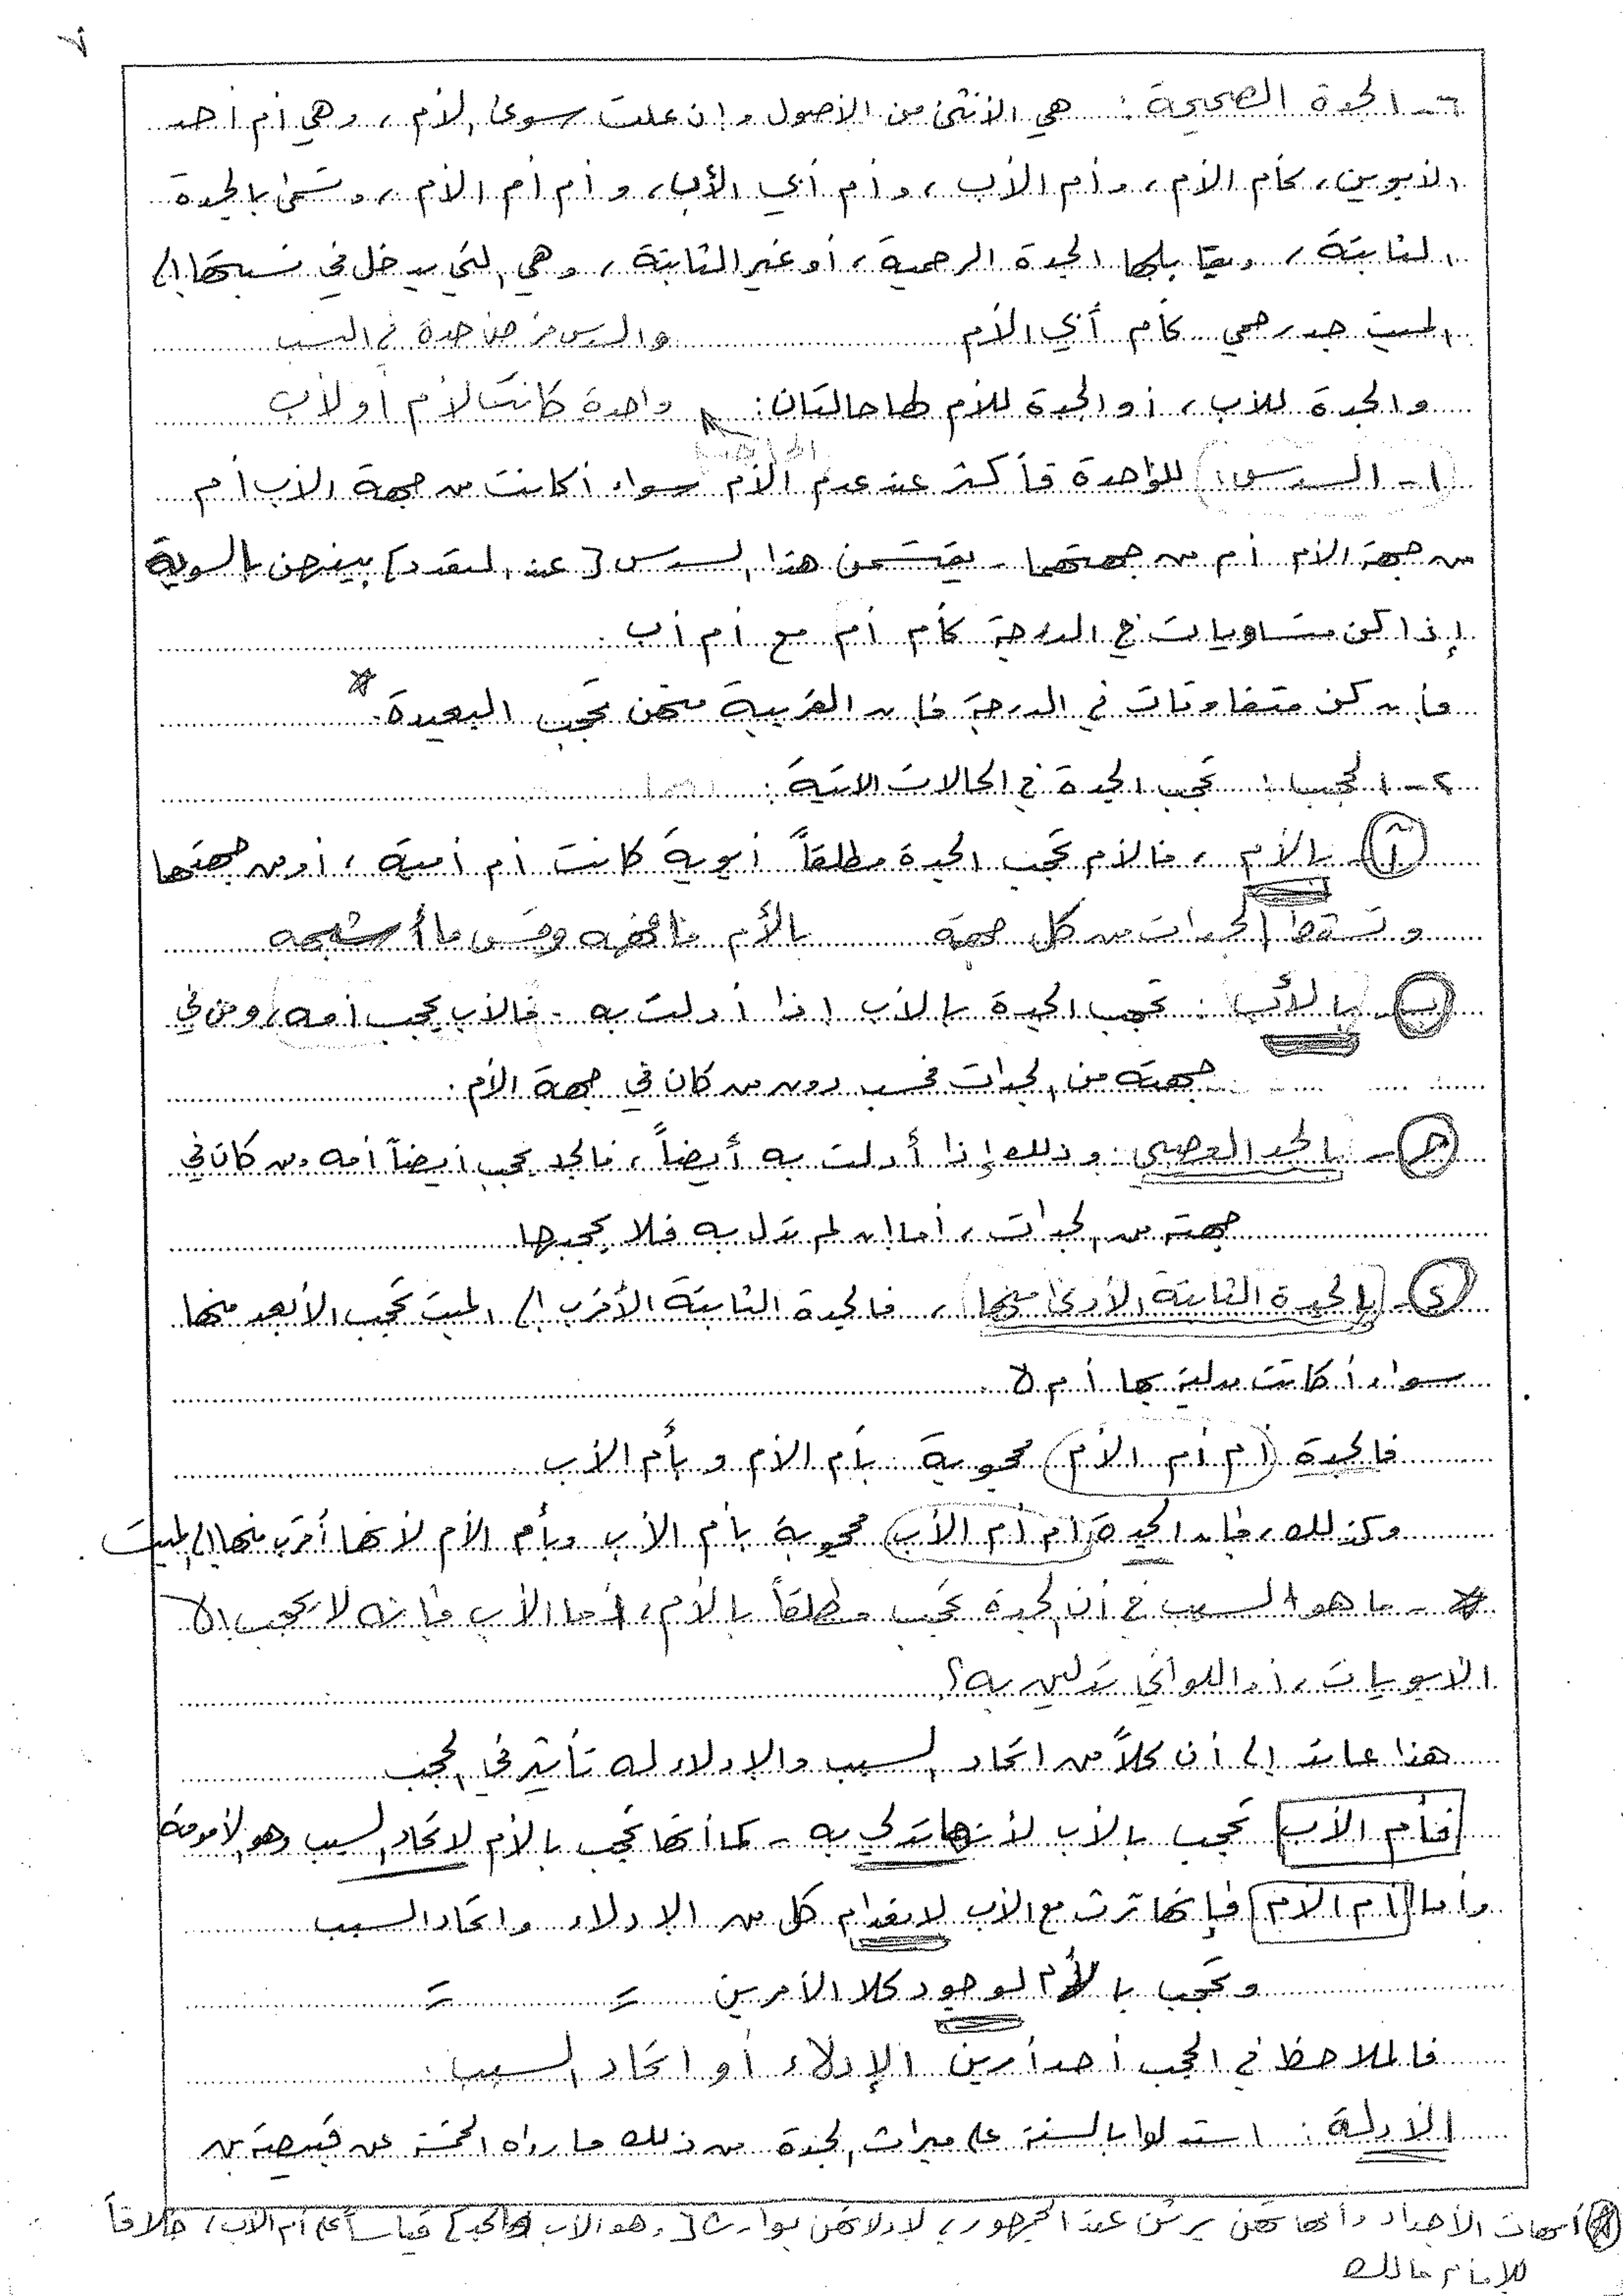 ٧
٦- الجدة الصحيحة: هي الأنثى من الأصول وإن علت سوى الأم، وهي أم أحد
الأبوين، كأم الأم، وأم الأب، وأم أبي الأب، وأم أم الأم، وتسمى بالجدة
الثابتة، ويقابلها الجدة الرحمية، أو غير الثابتة، وهي التي يدخل في نسبتها إلى
الميت جد رحمي كأم أبي الأم والسدس فرض جدة في النسب
والجدة للأب، أو الجدة للأم لها حالتان: واحدة كانت لأم أو لأب
١- السدس: للواحدة فأكثر عند عدم الأم سواء أكانت من جهة الأب أم
من جهة الأم أم من جهتهما - يقتسمن هذا السدس [عند التعدد] بينهن بالسوية
إذا كن متساويات في الدرجة كأم أم مع أم أب.
فإن كن متفاوتات في الدرجة فإن القريبة منهن تحجب البعيدة.*
٢- الحجب: تحجب الجدة في الحالات الآتية:
أ- بالأم، فالأم تحجب الجدة مطلقاً أبوية كانت أم أمية، أو من جهتها
وتسقط الجدات من كل جهة بالأم فافهمه وقس ما أشبهه
ب- بالأب: تحجب الجدة بالأب إذا أدلت به - فالأب يحجب أمه، ومن في
جهته من الجدات فحسب دون من كان في جهة الأم.
جـ- بالجد العصبي: وذلك إذا أدلت به أيضاً، فالجد يحجب أيضاً أمه ومن كان في
جهته من الجدات، أما إن لم تدل به فلا يحجبها
د- بالجدة الثابتة الأدنى منها، فالجدة الثابتة الأقرب إلى الميت تحجب الأبعد منها
سواء أكانت مدلية بها أم لا
فالجدة (أم أم الأم) محجوبة بأم الأم وبأم الأب
وكذلك، فإن الجدة (أم أم الأب) محجوبة بأم الأب وبأم الأم لأنها أقرب منها إلى الميت
* - ما هو السبب في أن الجدة تحجب مطلقاً بالأم، أما الأب فإنه لا يحجب إلا
الأبويات، أو اللواتي يدلين به؟
هذا عائد إلى أن كلاً من اتحاد السبب والإدلاء له تأثير في الحجب
فأم الأب تحجب بالأب لأنها تدلي به - كما أنها تحجب بالأم لاتحاد السبب وهو الأمومة
وأما أم الأم فإنها ترث مع الأب لانعدام كل من الإدلاء واتحاد السبب
وتحجب بالأم لوجود كلا الأمرين = =
فالملاحظ في الحجب أحد أمرين الإدلاء أو اتحاد السبب.
الأدلة: استدلوا بالسنة على ميراث الجدة من ذلك ما رواه الخمسة عن قبيصة بن
* أمهات الأجداد وأمهاتهن يرثن عند الجمهور، لإدلائهن بوارث [وهو الأب والجد] قياساً على أم الأب، خلافاً
للإمام مالك